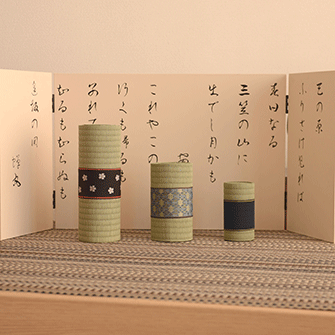 天の原
ふりさけみれば
春日なる
三笠の山に
出でし月かも
これやこの
行くも帰るも
しるもしらぬも
逢坂の関
蝉丸